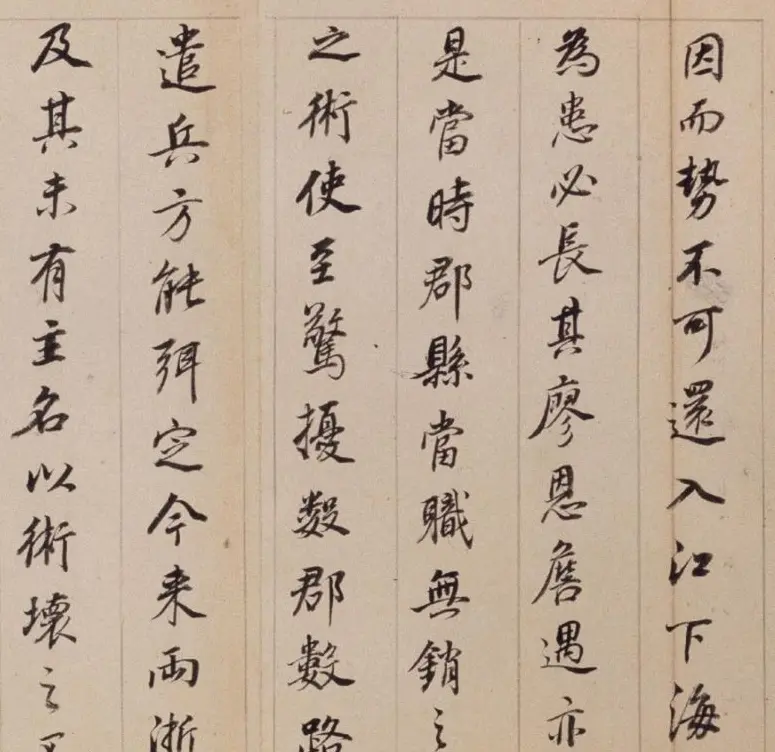 因而勢不可還入江下海
為患必長其廖恩詹遇亦
是當時郡縣當職無銷之
之術使至驚擾数郡數路
遣兵方能弭定今来兩浙
及其未有主名以術壞之